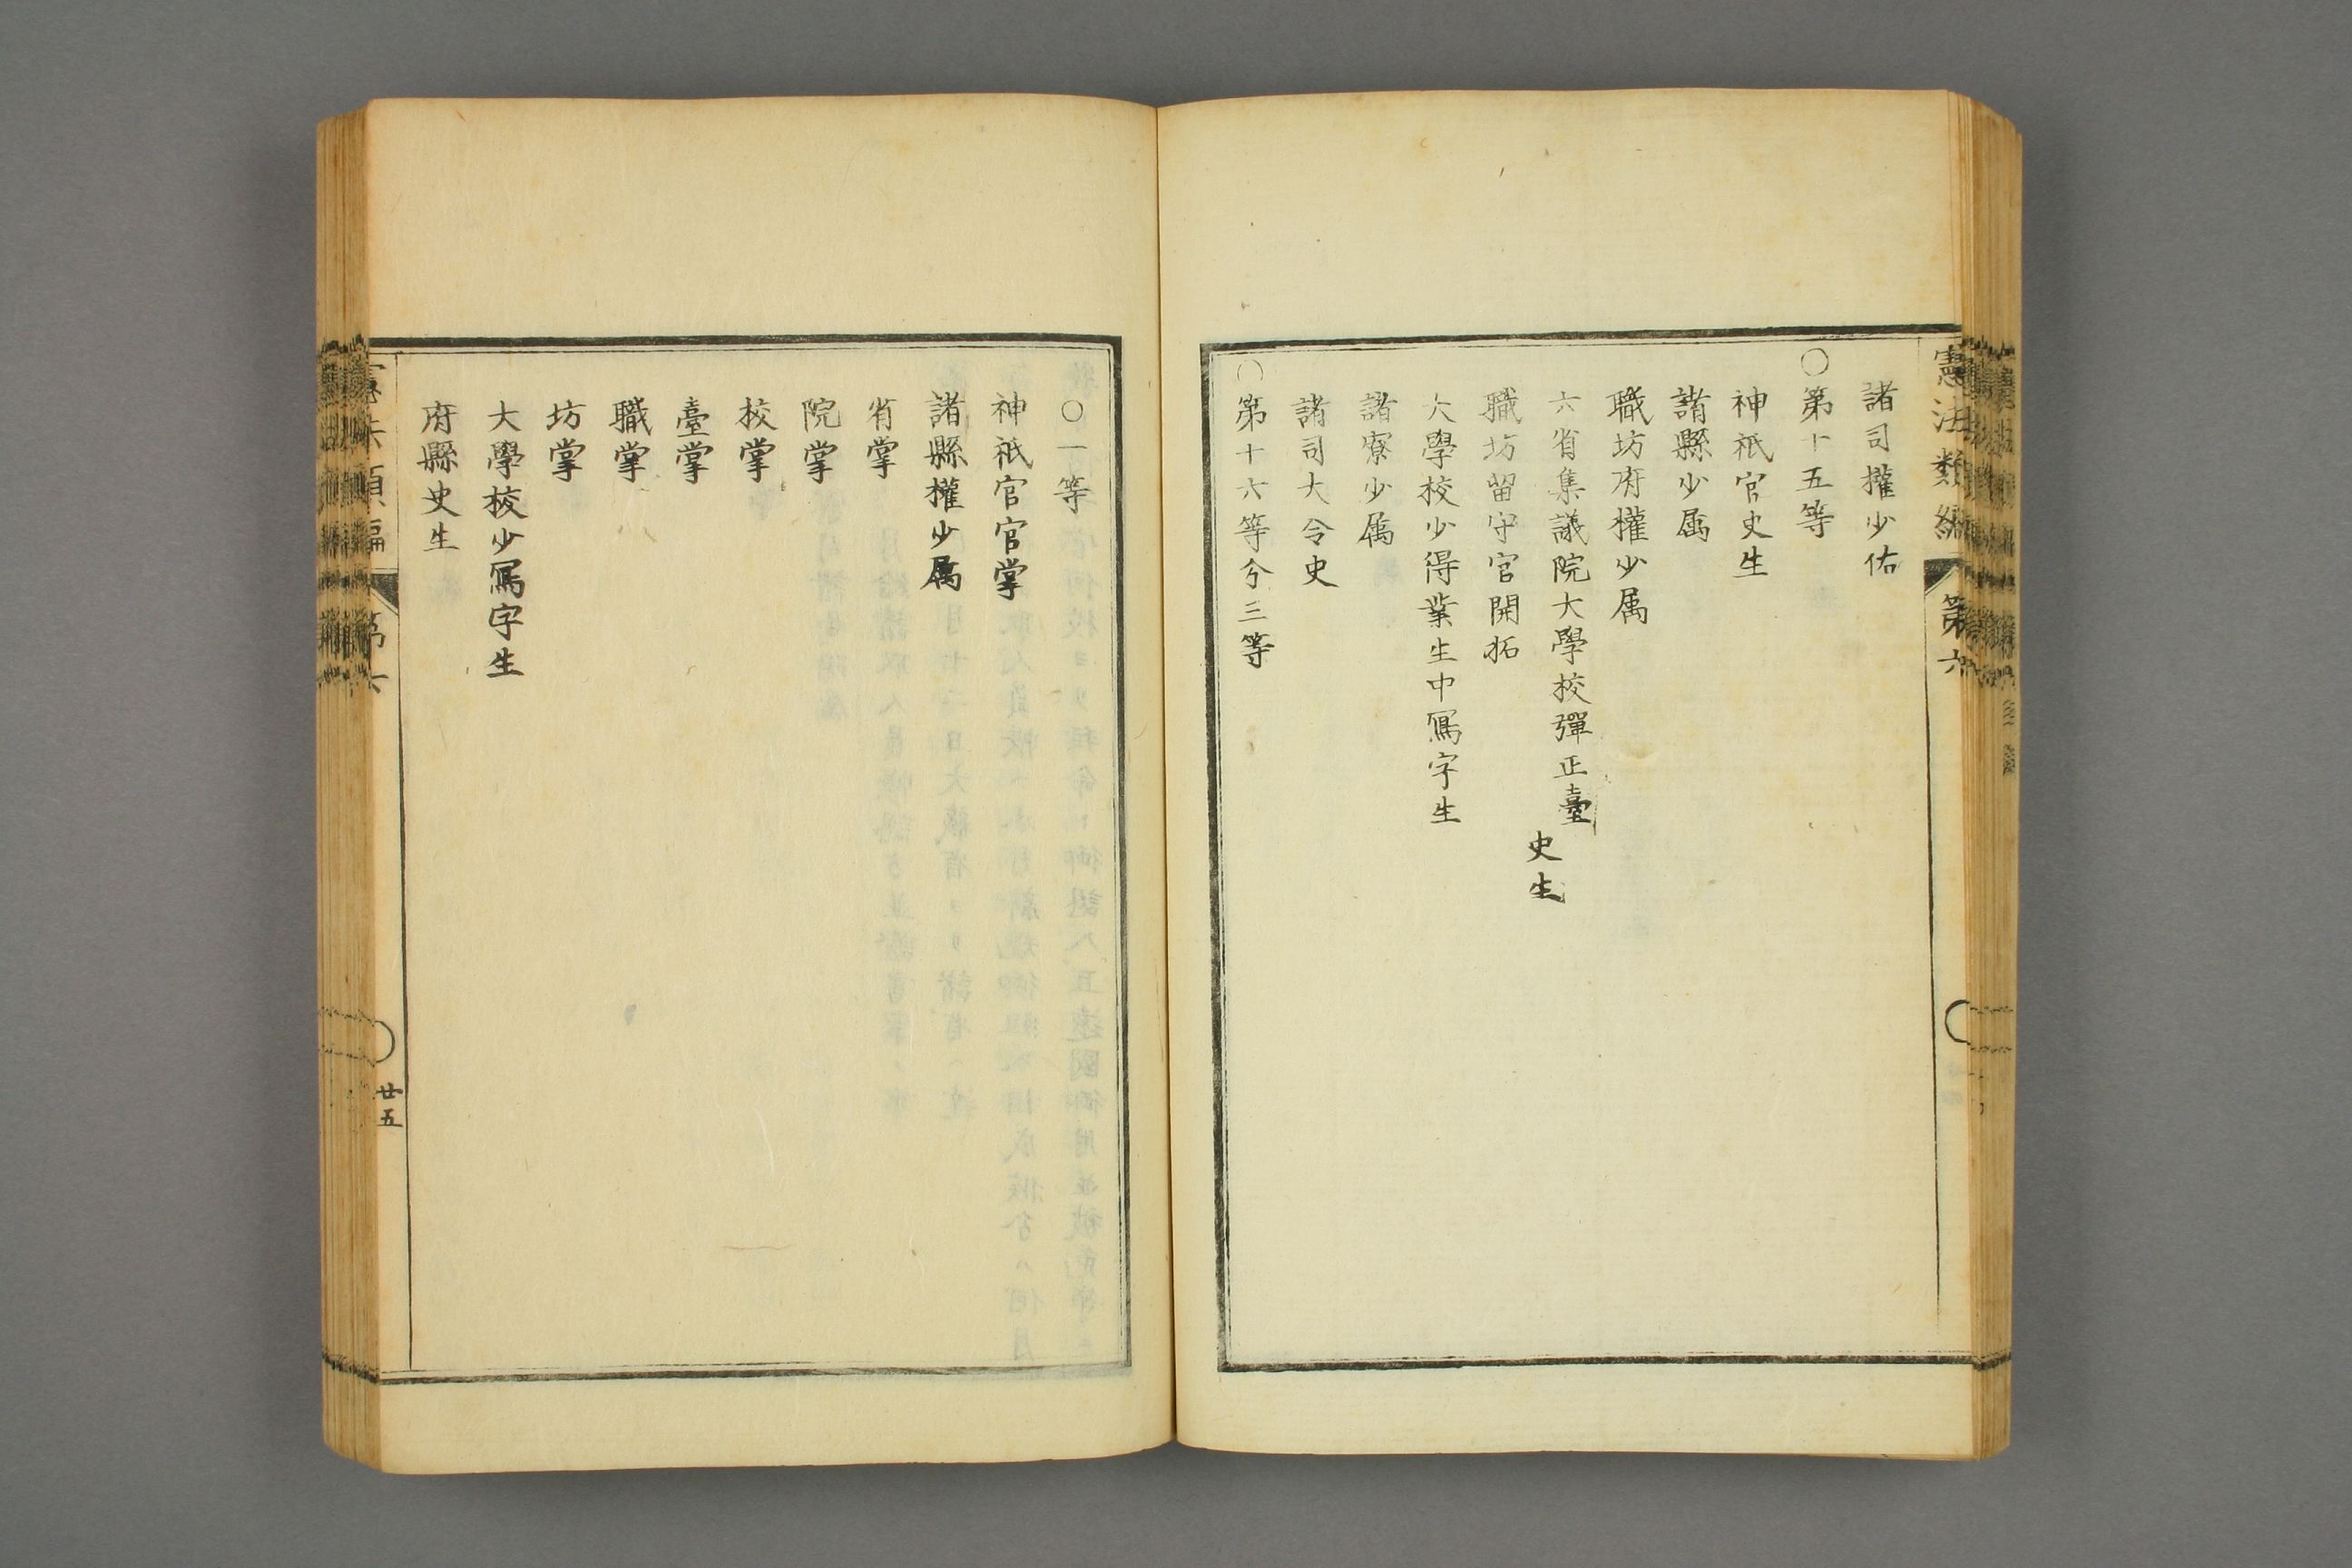 諸司權少佑
〇第十五等
神祇官史生
諸縣少属
職坊府權少属
六省集議院大學校彈正臺
職坊留守官開拓
史生
大學校少得業生中寫字生
諸寮少属
諸司大令史
〇第十六等分三等
憲法類編
第六
〇一等
神祇官官掌
諸縣權少属
省掌
院掌
校掌
臺掌
職掌
坊掌
大學校少寫字生
府縣史生
廿五